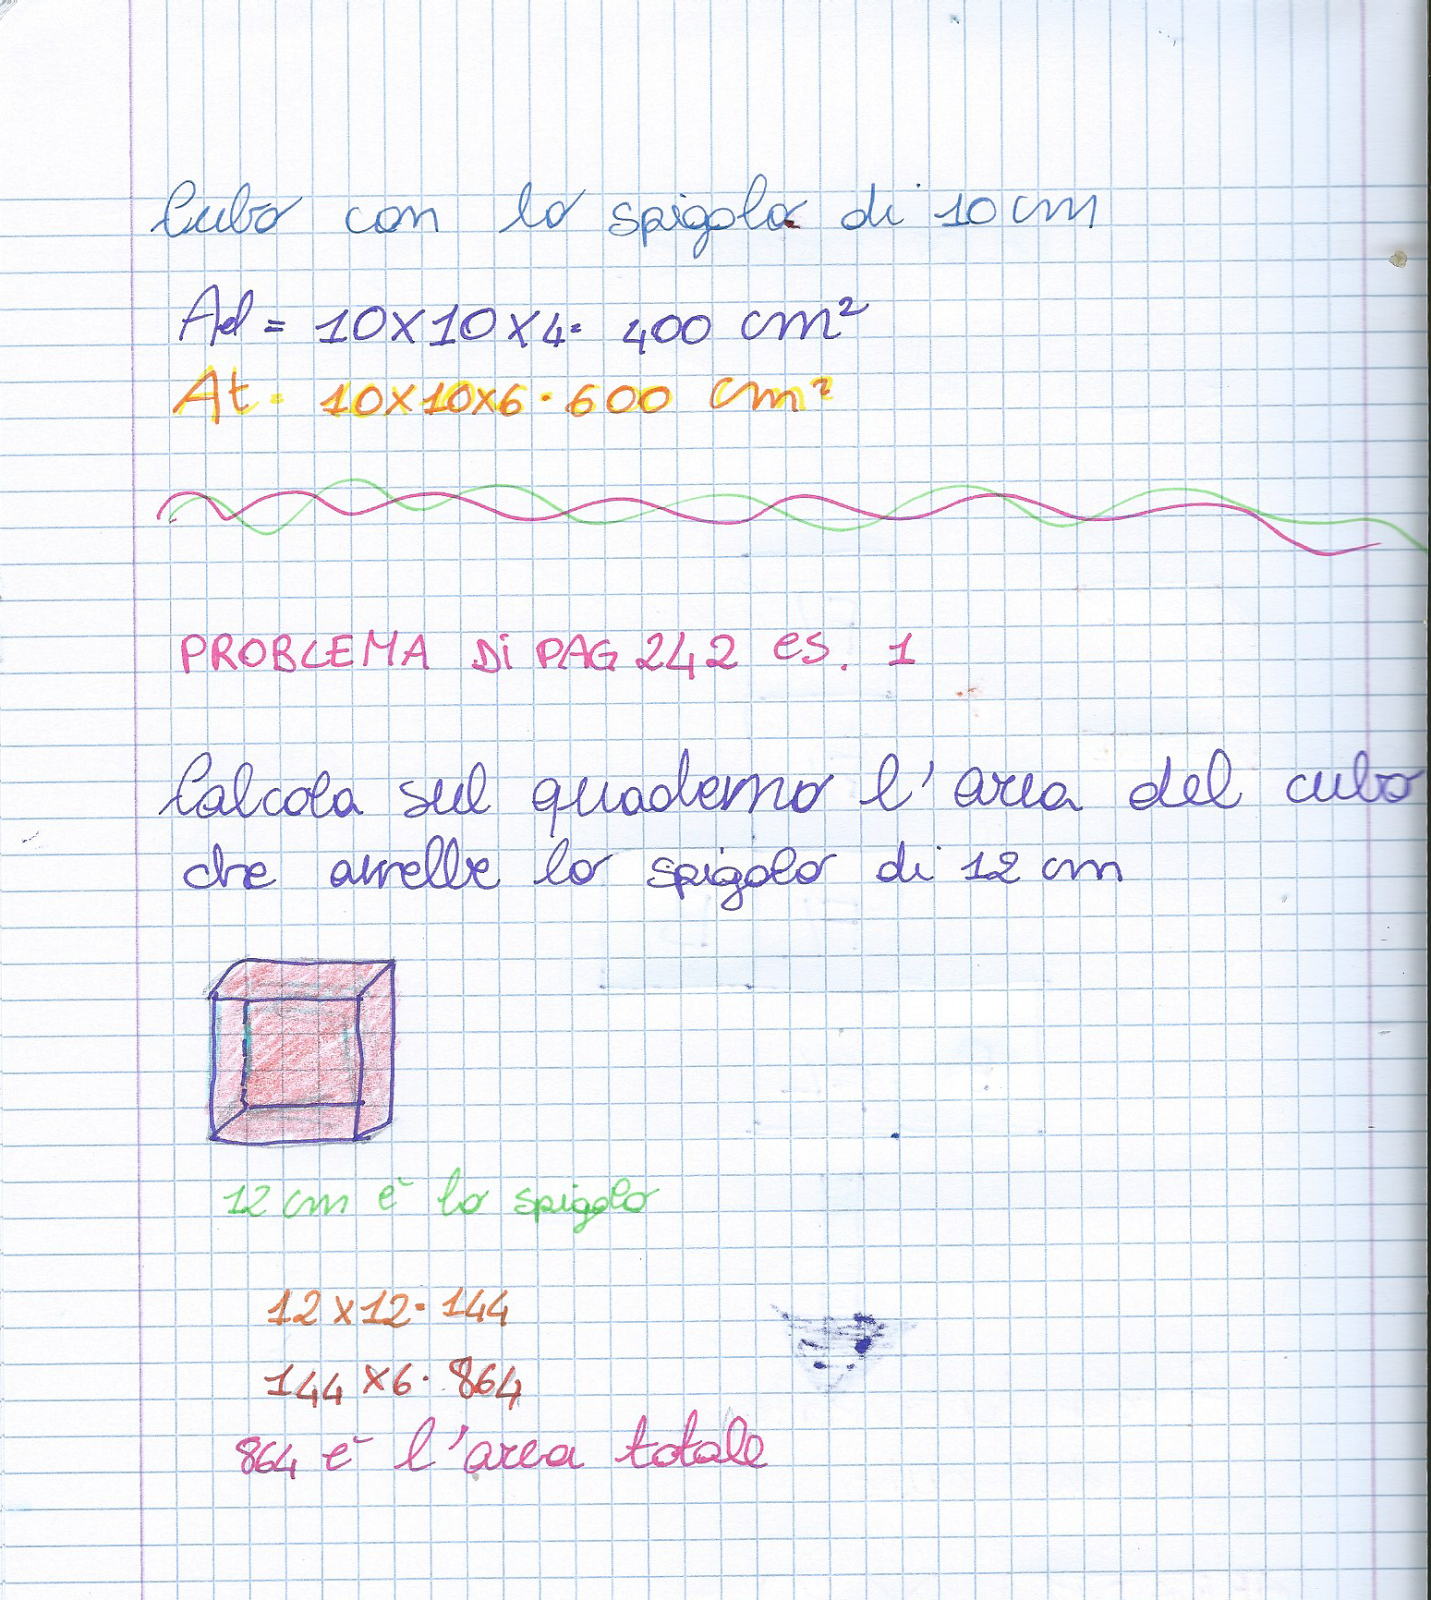 Cubo con lo spigolo di 10 cm
Al = 10x10x4= 400 cm²
At = 10x10x6= 600 cm²
PROBLEMA Di PAG 242 es. 1
Calcola sul quaderno l'area del cubo
che avrebbe lo spigolo di 12 cm
12 cm è lo spigolo
12x12= 144
144x6= 864
864 è l'area totale